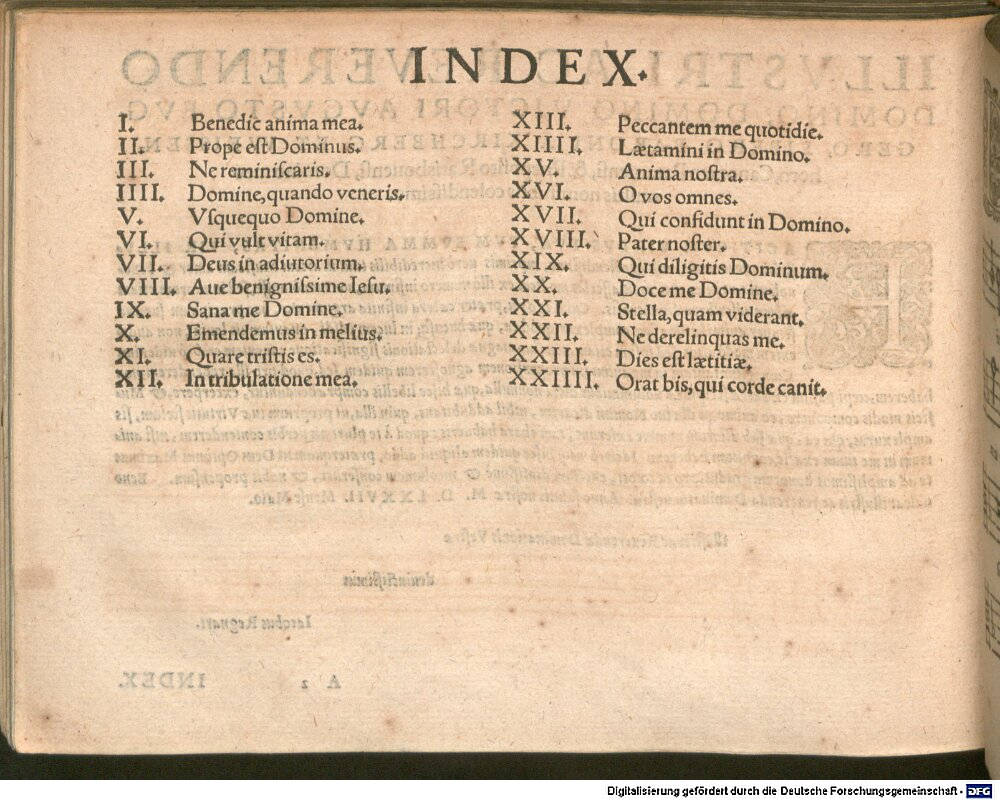 INDEX.
I. Benedic anima mea.
II. Prope eſt Dominus.
III. Ne reminiſcaris.
IIII. Domine, quando veneris.
V. Vſquequo Domine.
VI. Qui vult vitam.
VII. Deus in adiutorium.
VIII. Aue benigniſsime Ieſu.
IX. Sana me Domine.
X. Emendemus in melius.
XI. Quare triſtis es.
XII. In tribulatione mea.
XIII. Peccantem me quotidie.
XIIII. Lætamini in Domino.
XV. Anima noſtra.
XVI. O vos omnes.
XVII. Qui confidunt in Domino.
XVIII. Pater noſter.
XIX. Qui diligitis Dominum.
XX. Doce me Domine.
XXI. Stella, quam viderant.
XXII. Ne derelinquas me.
XXIII. Dies eſt lætitiæ.
XXIIII. Orat bis, qui corde canit.
Digitalisierung gefördert durch die Deutsche Forschungsgemeinschaft - DFG